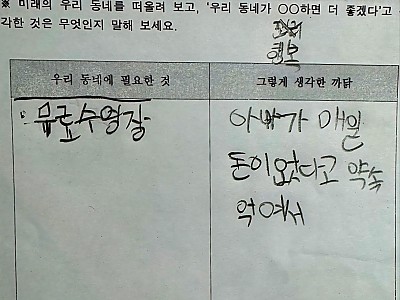 ※ 미래의 우리 동네를 떠올려 보고, '우리 동네가 ○○하면 더 좋겠다'고
각한 것은 무엇인지 말해 보세요.
행복
우리 동네에 필요한 것
그렇게 생각한 까닭
유료수영장
아빠가 매일
돈이 없다고 약속
억여서